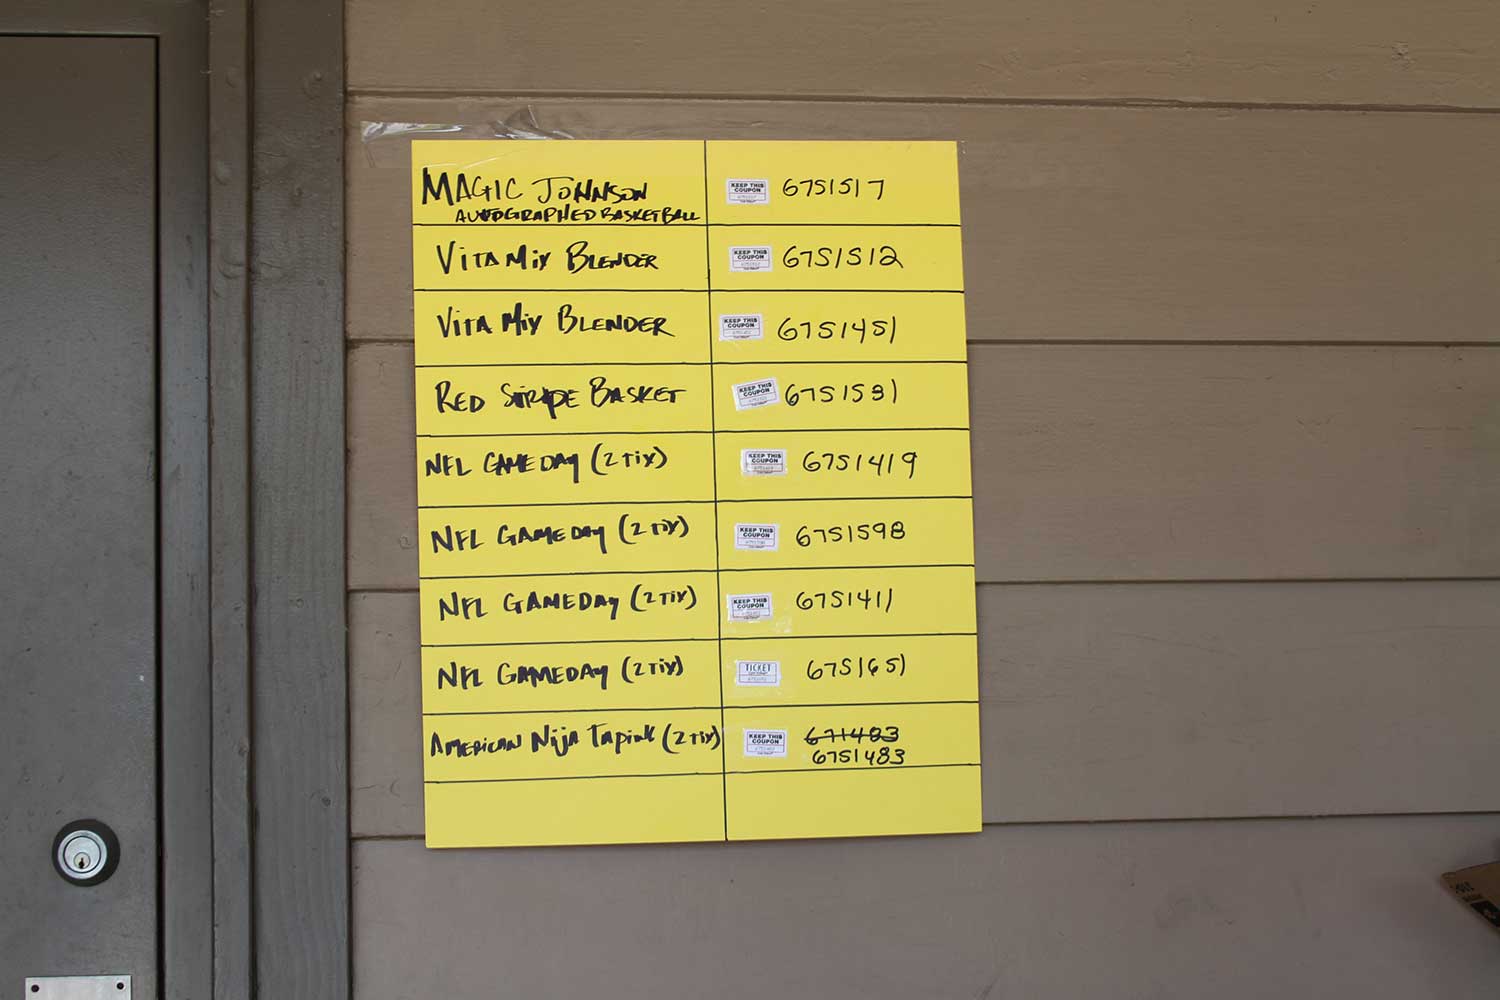 MAGIC JOHNSON
AUTOGRAPHED BASKETBALL
KEEP THIS
COUPON
6751517
VITA MIX BLENDER
KEEP THIS
COUPON
6751512
VITA MIX BLENDER
KEEP THIS
COUPON
6751451
RED STRIPE BASKET
KEEP THIS
COUPON
6751531
NFL GAMEDAY (2 TIX)
KEEP THIS
COUPON
6751419
NFL GAMEDAY (2 TIX)
KEEP THIS
COUPON
6751598
NFL GAMEDAY (2 TIX)
KEEP THIS
COUPON
6751411
NFL GAMEDAY (2 TIX)
TICKET
6751651
AMERICAN Nija TAPINK (2 TIX)
KEEP THIS
COUPON
671483
6751483